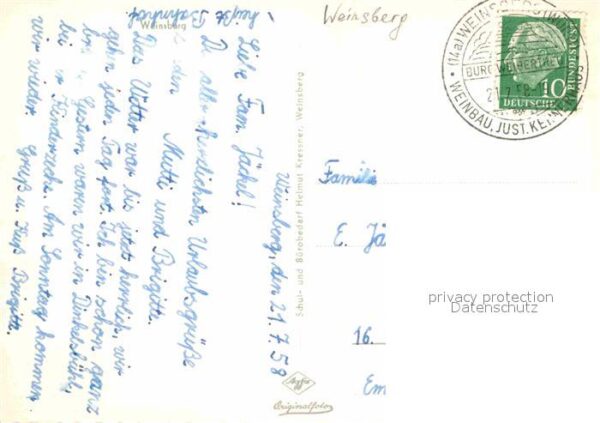 Weinsberg
heißt Bahnhof.
Weinsberg
Weinsberg, den 21.7.58
Liebe Fam. Jäkel!
Die allerherzlichsten Urlaubsgrüße
den Mutti und Brigitte.
Das Wetter war bis jetzt herrlich, wir
gehn jeden Tag fort. Ich bin schon ganz
Gestern waren wir in Dinkelsbühl,
bei Kinderzeche. Am Sonntag kommen
wir wieder. Gruß u. Kuß Brigitte.
Schul- und Bürobedarf Helmut Kressner, Weinsberg
Agfa
Originalfoto
(14a) WEINSBERG (W
BURG WEIBERTREU
21.7.58
WEINBAU, JUST. KERNERHAUS
DEUTSCHE
BUNDESPOST
10
Familie
E. Jä
16.
Em
privacy protection
Datenschutz